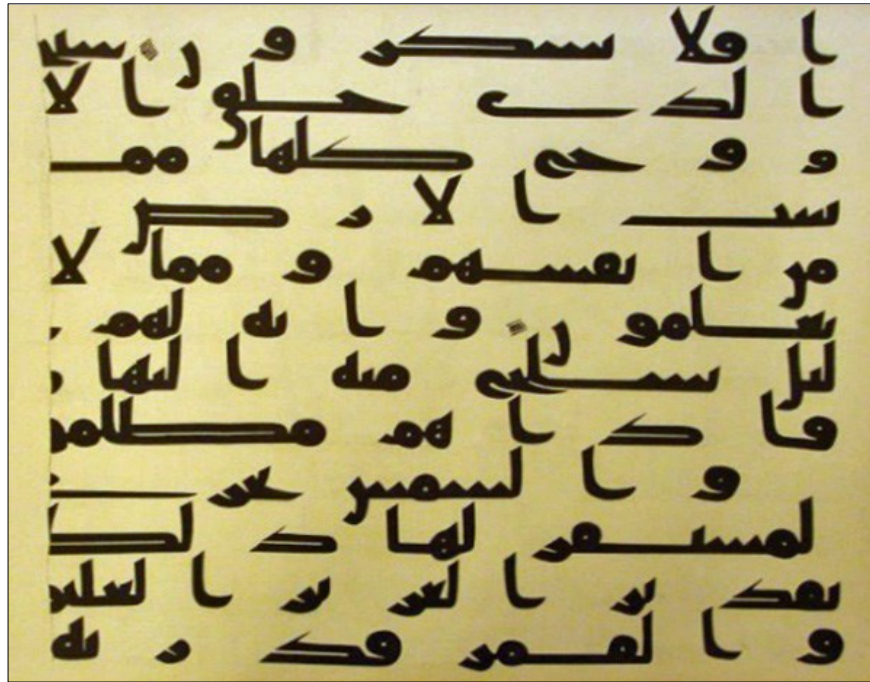 افلا يشكرون سبحن
الذي خلق الا
زوج كلها مما
تنبت الارض
من انفسهم ومما لا
يعلمون وايه لهم ا
ليل نسلخ منه النهار
فاذا هم مظلمون
والشمس تجري
لمستقر لها ذلك
تقدير العزيز العليم
والقمر قدرنه